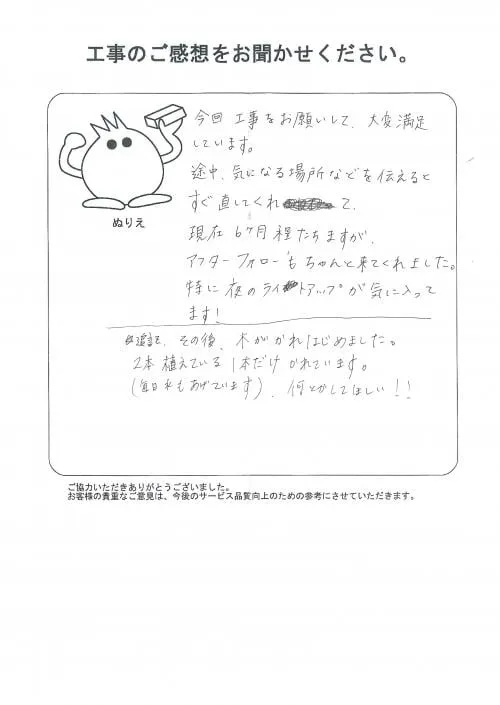 工事のご感想をお聞かせください。
今回 工事をお願いして、大変満足
しています。
途中、気になる場所などを伝えると
すぐ直してくれ て、
ぬりえ
現在 6ヶ月程たちますが、
アフターフォローもちゃんと来てくれました。
特に夜のライトアップが気に入って
ます!
追記、その後、木がかれはじめました。
2本植えている1本だけかれています。
(毎日水もあげています)、何とかしてほしい!!
ご協力いただきありがとうございました。
お客様の貴重なご意見は、今後のサービス品質向上のための参考にさせていただきます。